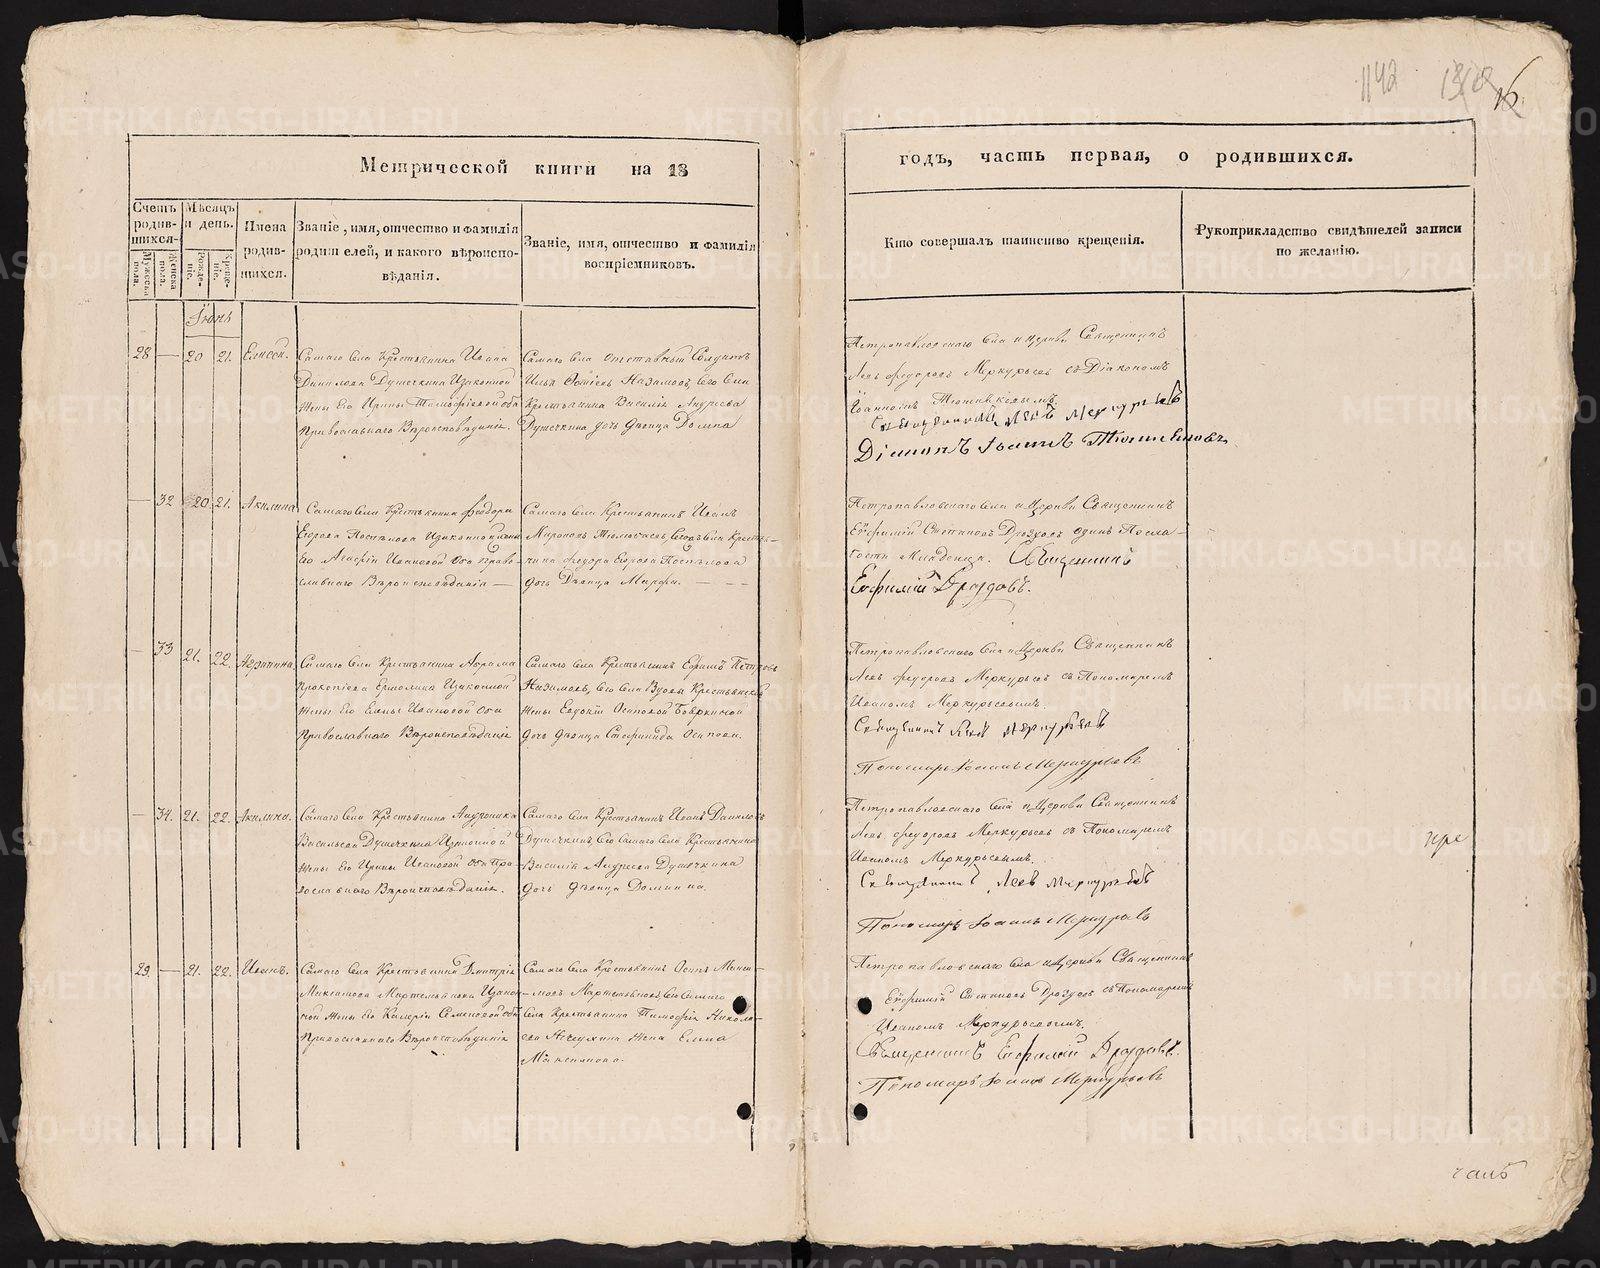 1142
16
Метрической книги на 18
годъ, часть первая, о родившихся.
Счетъ родив-шихся.
Мужеска пола.
Женска пола.
Мѣсяцъ и день.
Рожде-нiе.
Креще-нiе.
Имена родив-шихся.
Званiе, имя, отчество и фамилiя
родителей, и какого вѣроиспо-
вѣданiя.
Званiе, имя, отчество и фамилiя
воспрiемниковъ.
Кто совершалъ таинство крещенiя.
Рукоприкладство свидѣтелей записи
по желанiю.
Iюнь
28 — 20 21. Елисей.
Самаго Села Крестьянина Ивана
Данилова Душечкина Изаконной
Жены Его Ирины Тимофѣевой оба
Православнаго Вѣроисповѣданiя.
Самаго Села отставный Солдатъ
Илья Назимовъ, Его Села
Крестьянина Василiя Андреева
Душечкина дочь дѣвица Домна
Петропавловскаго Села и Церкви Священникъ
Левъ Федоровъ Меркурьевъ съ Дiакономъ
Священникъ Левъ Меркурьевъ
Дiаконъ Iоаннъ
— 32 20. 21. Акилина
Самаго Села Крестьянина Федора
Егорова Поспѣлова Изаконной жены
Его Агафiи Ивановой Оба Право-
славнаго Вѣроисповѣданiя —
Самаго Села Крестьянинъ Иванъ
Мироновъ Его Села Кресть-
нина Федора Егорова Поспѣлова
дочь Дѣвица Марфа. — — —
Петропавловскаго Села и Церкви Священникъ
Евфимiй Дроздовъ одинъ
Младенца. Священникъ
Евфимiй Дроздовъ.
— 33 21. 22.
Самаго Села Крестьянина Абрама
Прокопiева Ермолина Изаконной
Жены Его Елены Ивановой Оба
Православнаго Вѣроисповѣданiя
Самаго Села Крестьянинъ Ефимъ Петровъ
Назимовъ, Его Села Вдовы Крестьянской
Жены Евдокiи Осиповой
дочь дѣвица Стефанида Осипова.
Петропавловскаго Села и Церкви Священникъ
Левъ Федоровъ Меркурьевъ съ Пономаремъ
Иваномъ Меркурьевымъ.
Священникъ Левъ Меркурьевъ
Пономарь Iоаннъ Меркурьевъ
— 34. 21. 22. Акилина.
Самаго Села Крестьянина Андроника
Васильева Душечкина Изаконной
Жены Его Ирины Ивановой оба Пра-
вославнаго Вѣроисповѣданiя.
Самаго Села Крестьянинъ Иванъ Даниловъ
Душечкинъ Его Самаго Села Крестьянина
Василiя Андреева Душечкина
дочь дѣвица Домна.
Петропавловскаго Села и Церкви Священникъ
Левъ Федоровъ Меркурьевъ съ Пономаремъ
Иваномъ Меркурьевымъ.
Священникъ Левъ Меркурьевъ
Пономарь Iоаннъ Меркурьевъ
29. — 21. 22. Иванъ.
Самаго Села Крестьянина Дмитрiя
Максимова Мартемьянова Изакон-
ной Жены Его Валерiи Семеновой оба
Православнаго Вѣроисповѣданiя
Самаго Села Крестьянинъ Осипъ Макси-
мовъ Мартемьяновъ, Его Самаго
Села Крестьянина Тимофея Никола-
ева жена Елена
Максимова.
Петропавловскаго Села и Церкви Священникъ
Евфимiй Дроздовъ съ Пономаремъ
Иваномъ Меркурьевымъ.
Священникъ Евфимiй Дроздовъ.
Пономарь Iоаннъ Меркурьевъ
METRIKI.GASO-URAL.RU